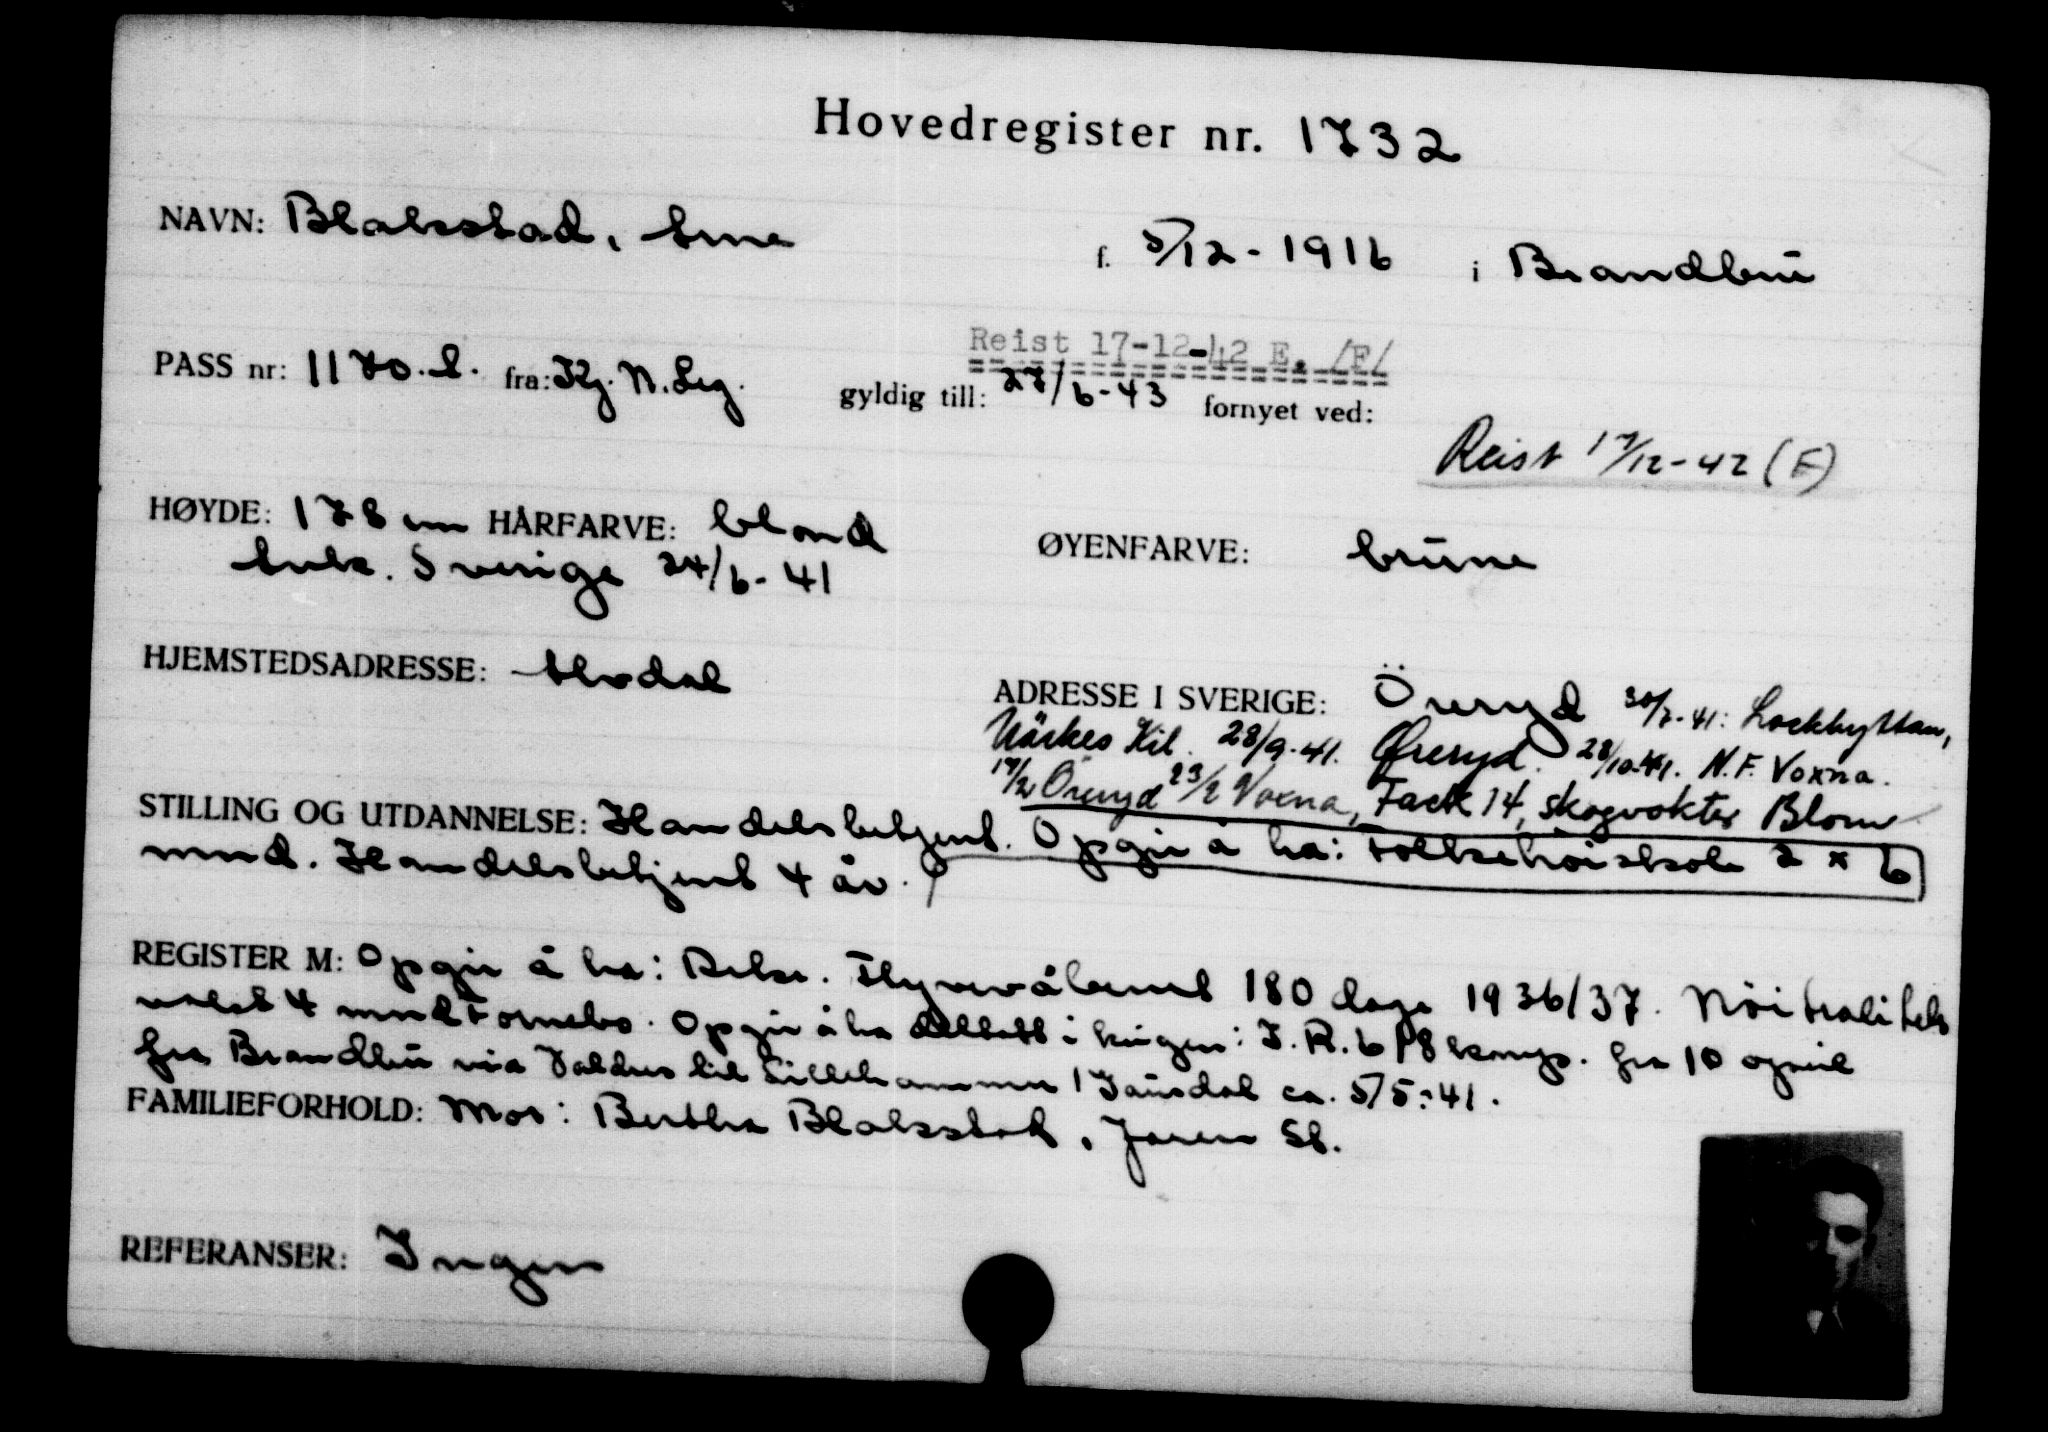 Hovedregister nr. 1732
NAVN: Blakstad, Arne f. 5/12-1916 i Brandbu
Reist 17-12-42 E. /F/
PASS nr: 1170.L. fra: Kg. N. Leg. gyldig till: 27/6-43 fornyet ved:
Reist 17/12-42 (F)
HØYDE: 178 cm HÅRFARVE: blond ØYENFARVE: brune
Ank. Sverige 24/6-41
HJEMSTEDSADRESSE: Alvdal
ADRESSE I SVERIGE: Öreryd 30/7-41: Lockhyttan,
Närkes Kil. 28/9-41. Øreryd. 28/10-41. N.F. Voxna.
17/2 Öreryd 23/2 Voxna, Fack 14, skogvokter Blom
STILLING OG UTDANNELSE: Handelsbetjent. Opgir å ha: Folkehöiskole 2 x 6
mnd. Handelsbetjent 4 år.
REGISTER M: Opgir å ha: Rekr. Flyvevåbnet 180 dage 1936/37. Nöitralitets
vakt 4 mnd Fornebo. Opgir å ha deltatt i krigen: I.R.6 / 8 komp. fra 10 april
fra Brandbu via Valdres til Lillehammer / Gausdal ca. 5/5-41.
FAMILIEFORHOLD: Mor: Bertha Blakstad, Jaren St.
REFERANSER: Ingen